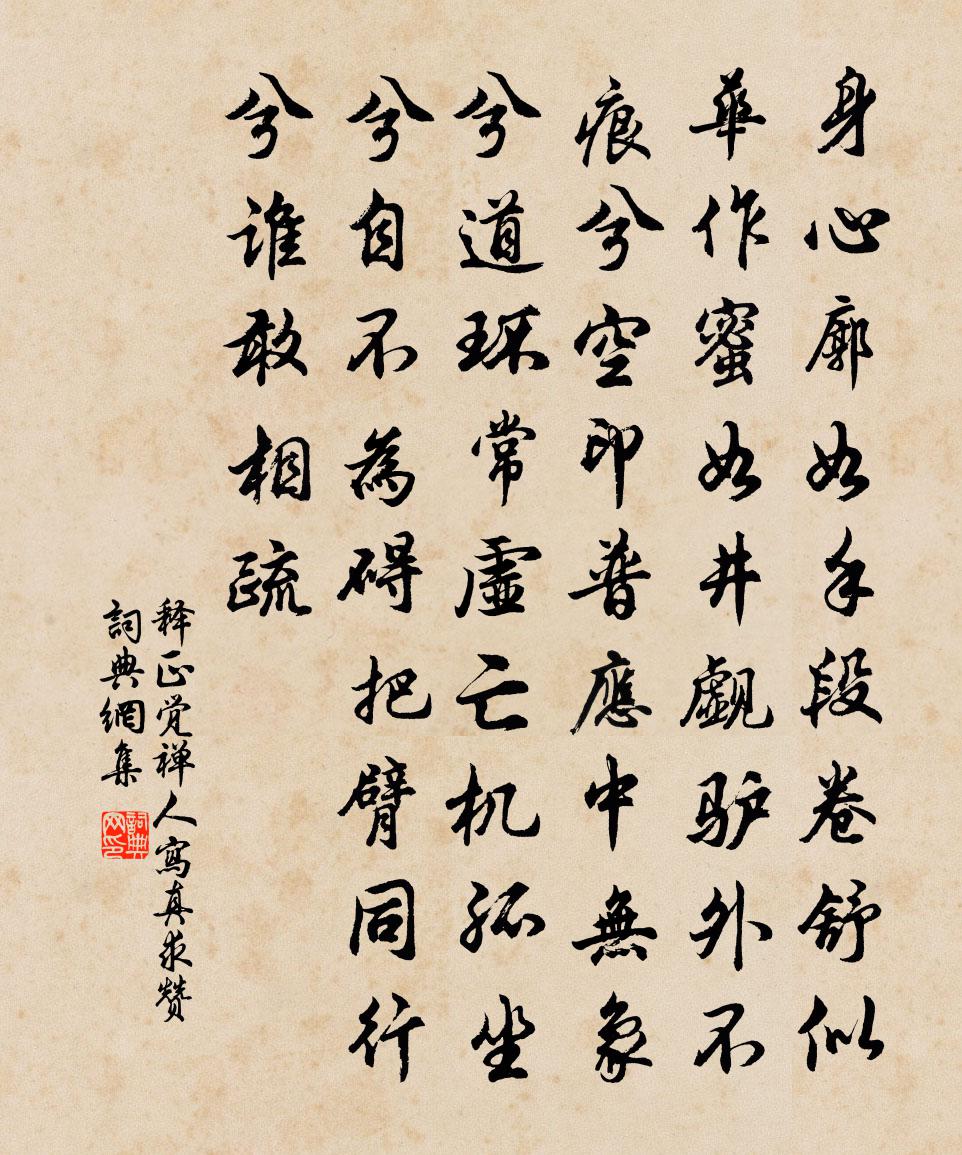 身心廓如手段卷舒似
華作蜜如井觑驴外不
痕兮空印普應中無象
兮道環常虛亡机孤坐
兮自不為碍把臂同行
兮谁敢相疏
释正觉禅人寫真求赞
詞典網集
詞典网印